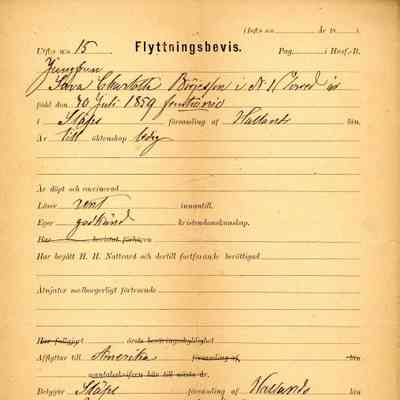 (Infts n:o År 18
Utfts n:o 15 Flyttningsbevis. Pag. i Husf.-B.
Jungfrun
Charlotta Börjesson i N:o
född den 10 Juli 1859
i Släps församling af Hallands län,
Är till äktenskap ledig
Är döpt och vaccinerad
Läser rent innantill.
Eger godkänd kristendomskunskap.
Har bevistat förhören
Har begått H. H. Nattvard och dertill fortfarande berättigad
Åtnjuter medborgerligt förtroende
Har fullgjort årets beväringsskyldighet
Afflyttar till Amerika församling af, län
mantalsskrifven här till nästa år.
Betygar Släps församling af Hallands län